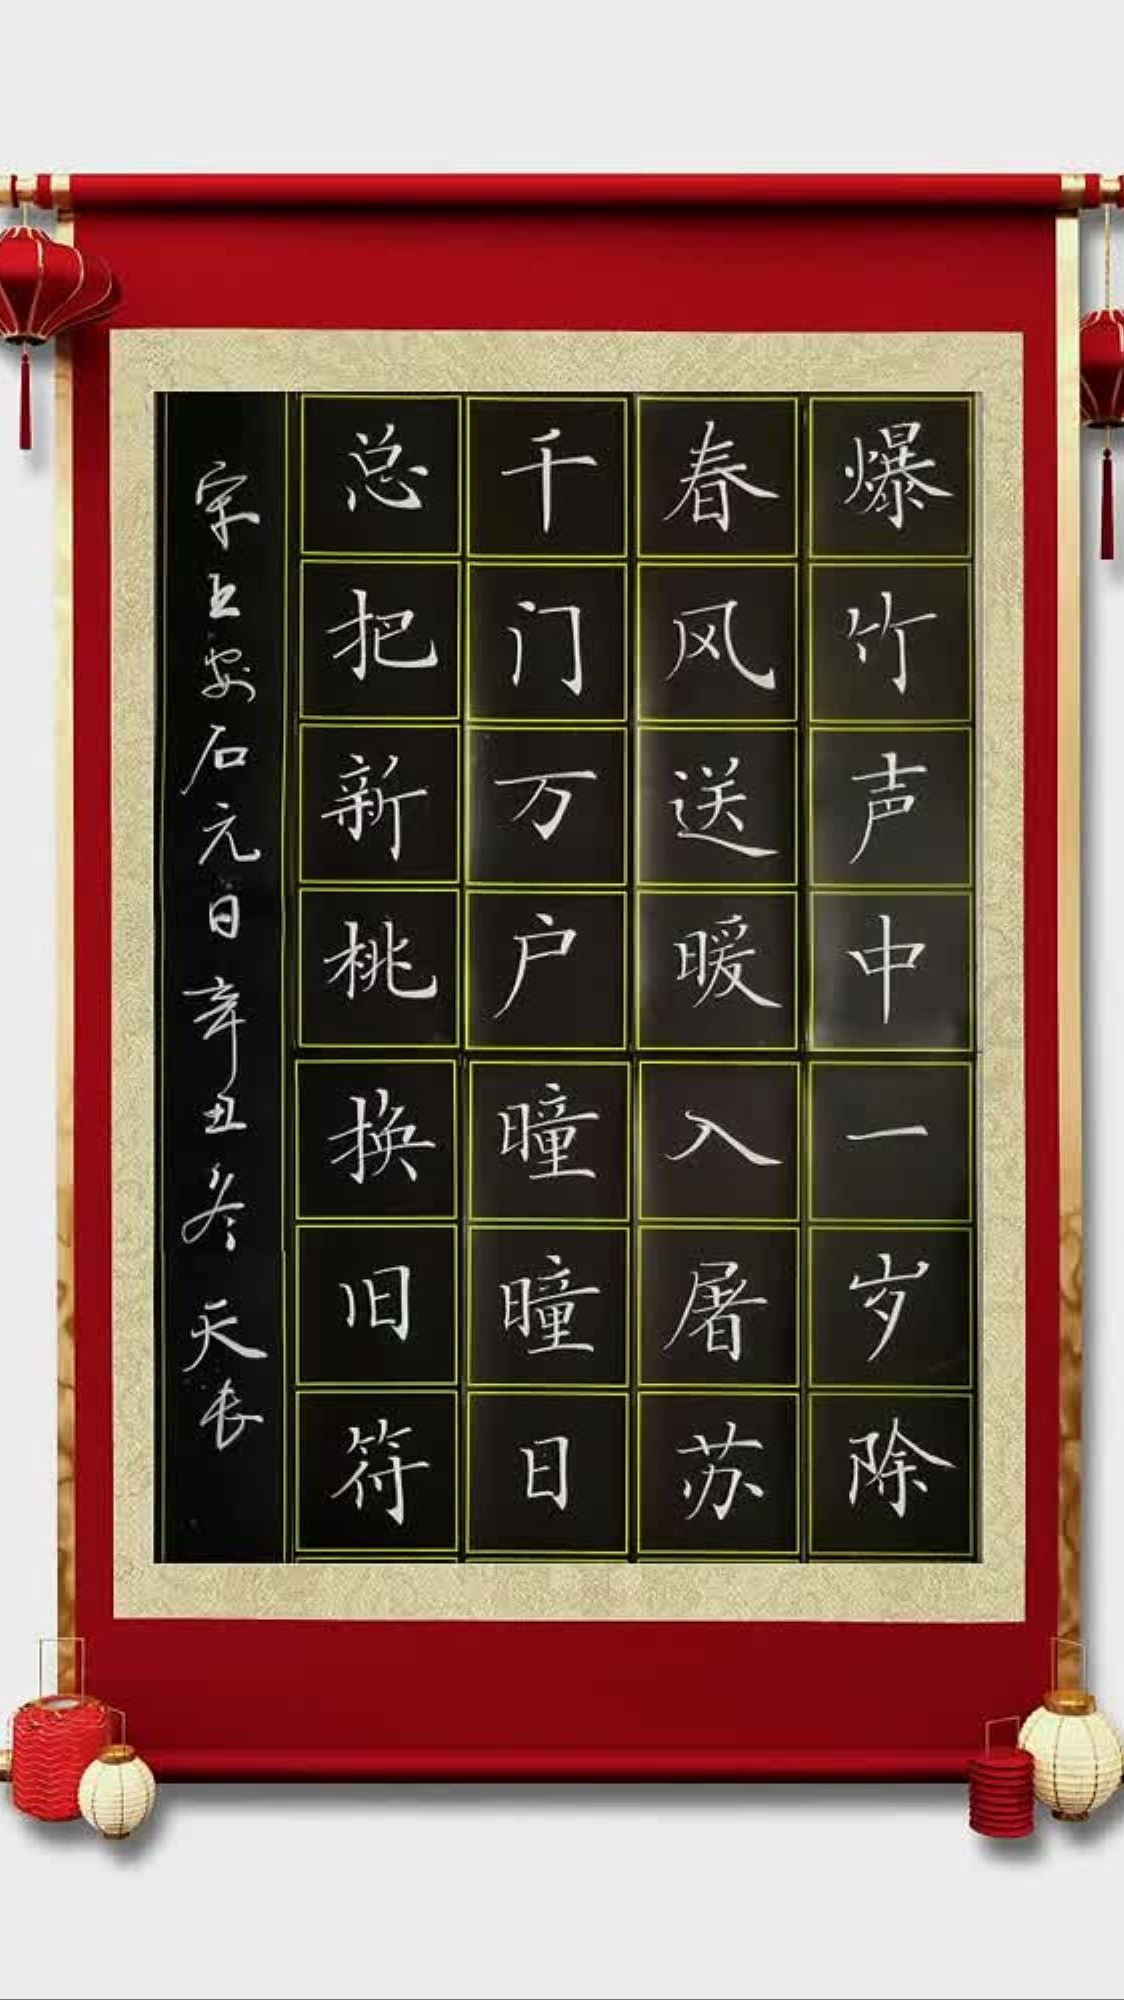 爆竹声中一岁除
春风送暖入屠苏
千门万户曈曈日
总把新桃换旧符
宋王安石元日辛丑冬天长